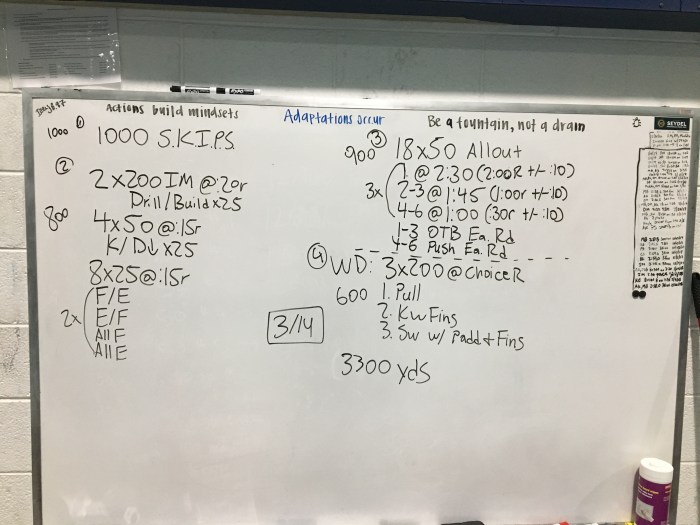 Actions build mindsets
Adaptations occur
Be a fountain, not a drain
SEYDEL
1000 ①
1000 S.K.I.P.S.
②
800
2x200 IM @:20r
Drill/Build x25
4x50 @:15r
K/D↓ x25
8x25@:15r
2x
F/E
E/F
All F
All E
③
900
18x50 Allout
3x
1 @ 2:30 (2:00R +/- :10)
2-3 @ 1:45 (1:00r +/- :10)
4-6 @ 1:00 (:30r +/- :10)
1-3 OTB Ea. Rd
4-6 Push Ea. Rd
④ WD: 3x200 @ Choice R
600
1. Pull
2. K w Fins
3. Sw w/ Padd + Fins
3/14
3300 yds